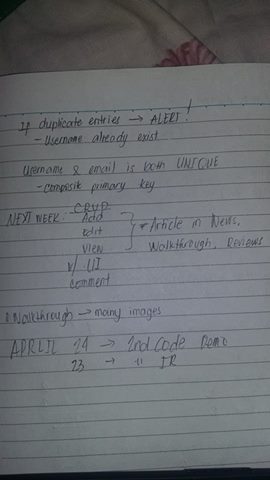 If duplicate entries → ALERT!
- Username already exist
Username & email is both UNIQUE
- composite primary key
NEXT WEEK: CRUD
Add
Edit
View
} * Article in News,
Walkthrough, Reviews
w/ UI
comment
Walkthrough → many images
APRLIL 24 → 2nd Code Demo
23 → " IR